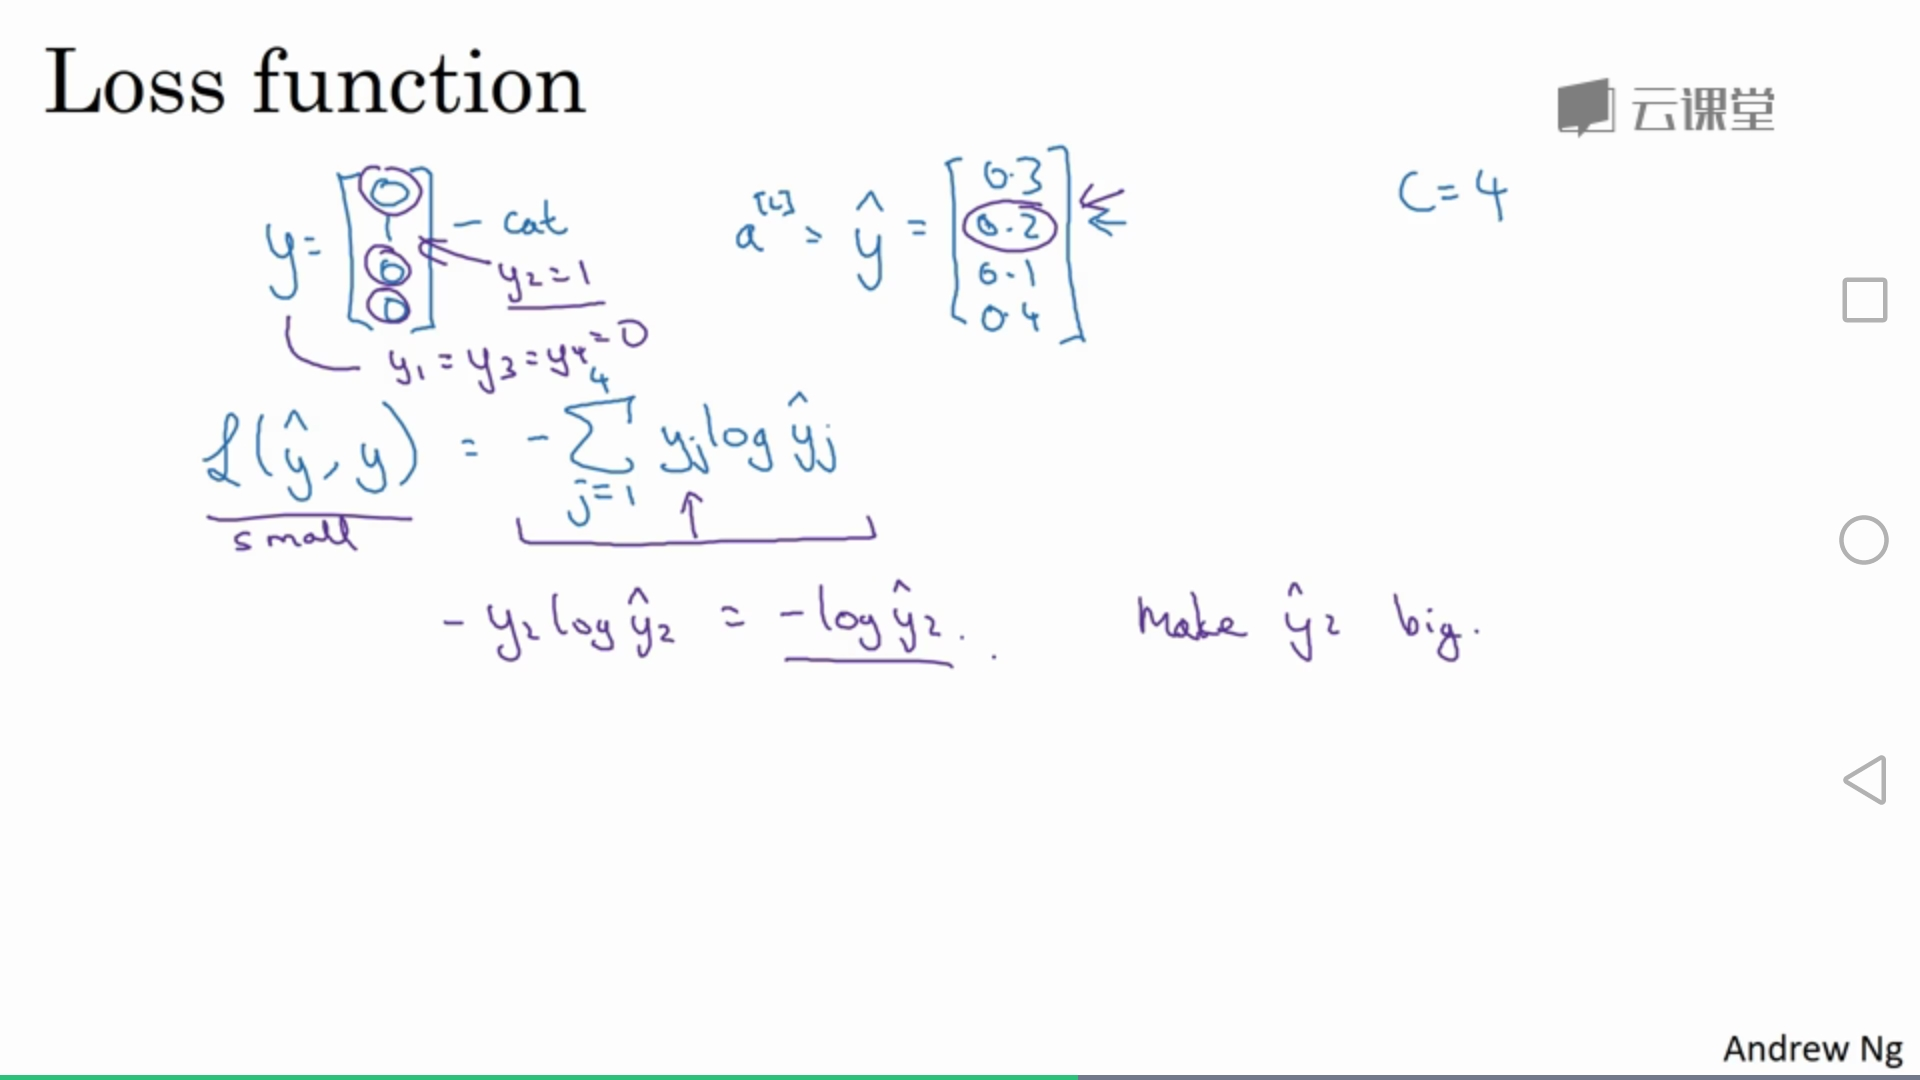 Loss function
云课堂
y = [0 1 0 0] - cat
y₂ = 1
y₁ = y₃ = y₄ = 0
a^[L] = ŷ = [0.3 0.2 0.1 0.4]
C = 4
L(ŷ, y) = - ∑_{j=1}^{4} y_j log ŷ_j
small
- y₂ log ŷ₂ = - log ŷ₂. Make ŷ₂ big.
Andrew Ng